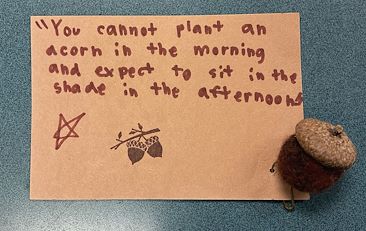 "You cannot plant an
acorn in the morning
and expect to sit in the
shade in the afternoon"